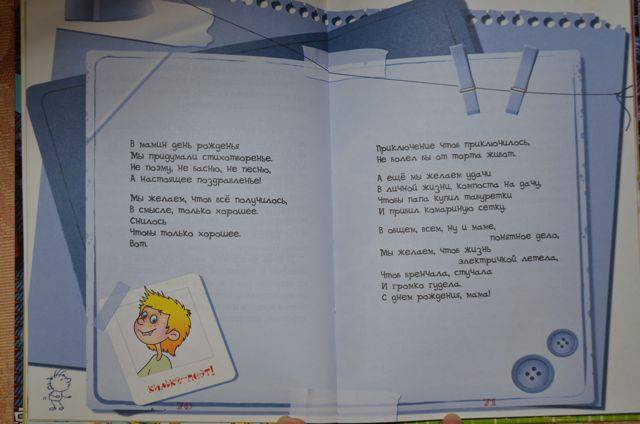 В мамин день рожденья
Мы придумали стихотворенье.
Не поэму, не басню, не песню,
А настоящее поздравленье!
Мы желаем, чтоб всё получилось,
В смысле, только хорошее.
Снилось
Чтобы только хорошее.
Вот.
Колька-поэт!
70
Приключение чтоб приключилось,
Не болел бы от торта живот.
А ещё мы желаем удачи
В личной жизни, компоста на дачу,
Чтобы папа купил табуретки
И прибил комариную сетку.
В общем, всем, ну и маме,
понятное дело,
Мы желаем, чтоб жизнь
электричкой летела,
Чтоб бренчала, стучала
И громко гудела.
С днем рождения, мама!
71